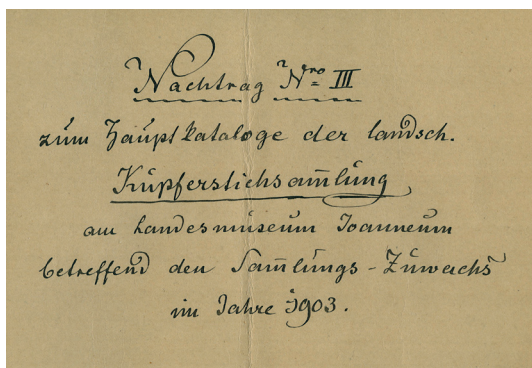 Nachtrag Nro III
zum Hauptkataloge der landsch.
Kupferstichsam̅lung
am Landesmuseum Joanneum
betreffend den Sam̅lungs-Zuwachs
im Jahre 1903.